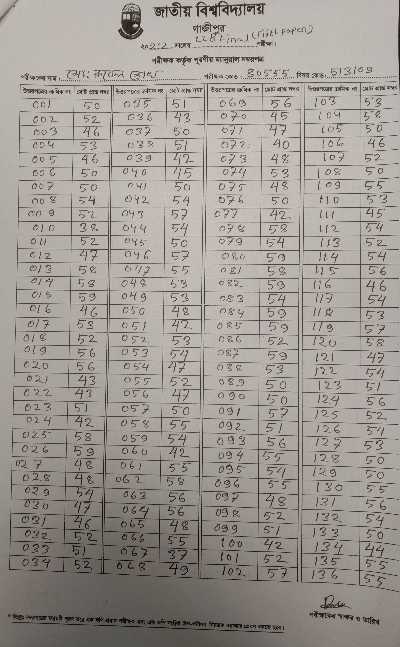 জাতীয় বিশ্ববিদ্যালয়
গাজীপুর
পরীক্ষক কর্তৃক পূরণীয় ম্যানুয়াল নম্বরপত্র
পরীক্ষকের নাম : পরীক্ষক কোড : 30555 বিষয় কোড : 513109
উত্তরপত্রের ক্রমিক নং মোট প্রাপ্ত নম্বর উত্তরপত্রের ক্রমিক নং মোট প্রাপ্ত নম্বর উত্তরপত্রের ক্রমিক নং মোট প্রাপ্ত নম্বর উত্তরপত্রের ক্রমিক নং মোট প্রাপ্ত নম্বর
001 50 035 51 069 56 103 53
002 52 036 43 070 45 104 58
003 46 037 50 071 47 105 50
004 53 038 51 072 40 106 46
005 46 039 42 073 48 107 52
006 50 040 45 074 53 108 50
007 50 041 50 075 48 109 55
008 54 042 54 076 50 110 53
009 52 043 57 077 42 111 45
010 38 044 54 078 58 112 54
011 52 045 50 079 54 113 52
012 47 046 57 080 59 114 54
013 58 047 55 081 58 115 56
014 58 048 53 082 59 116 46
015 59 049 53 083 54 117 54
016 46 050 48 084 59 118 53
017 53 051 42 085 59 119 57
018 52 052 53 086 52 120 58
019 56 053 54 087 59 121 47
020 56 054 47 088 53 122 54
021 43 055 52 089 50 123 51
022 43 056 47 090 50 124 56
023 51 057 50 091 57 125 52
024 42 058 55 092 51 126 54
025 58 059 54 093 56 127 53
026 59 060 42 094 55 128 50
027 48 061 55 095 54 129 50
028 48 062 58 096 55 130 55
029 54 063 56 097 48 131 56
030 47 064 56 098 52 132 54
031 46 065 48 099 51 133 50
032 52 066 55 100 42 134 44
033 51 067 37 101 52 135 55
034 52 068 49 102 57 136 55
পরীক্ষকের স্বাক্ষর ও তারিখ